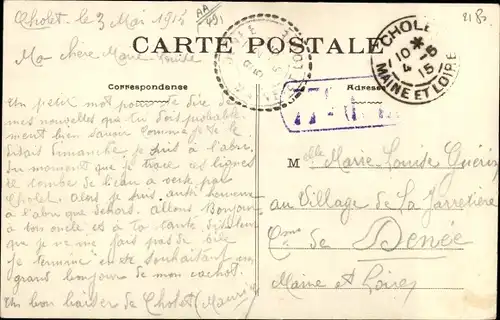 Cholet le 3 Mai 1915
CARTE POSTALE
Correspondance
Adresse
CHOLET
10 *
4 - 5
15
MAINE ET LOIRE
Ma chère Marie Louise
Un petit mot pour te dire de
mes nouvelles que tu dois probable-
ment bien savoir comme je te le
disais Dimanche je suis à l'abri.
Du moment que je trace ces lignes
il tombe de l'eau à verse par
Cholet. Alors je suis
à l'abri que dehors. Allons Bonjour
à ton oncle et à ta tante dis leur
que je ne me fais pas de bile
je termine en te souhaitant un
grand bonjour de mon cachot.
Un bon baiser de Cholet (Maurice)
Melle Marie Louise Guérin
au Village de La Jarretière
Cne de Denée
Maine et Loire